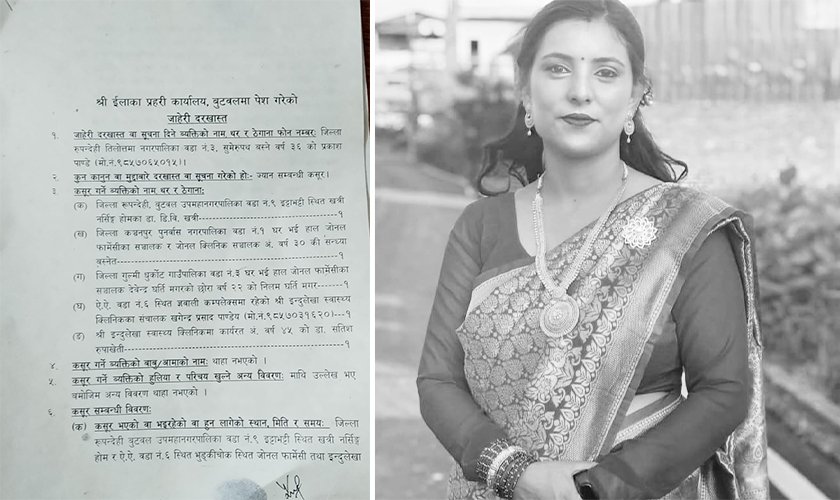 श्री ईलाका प्रहरी कार्यालय, बुटवलमा पेश गरेको
जाहेरी दरखास्त
१. जाहेरी दरखास्त वा सूचना दिने ब्यक्तिको नाम थर र ठेगाना फोन नम्बर: जिल्ला
रूपन्देही तिलोत्तमा नगरपालिका वडा नं.३, सुमेरूपथ बस्ने वर्ष ३६ को प्रकाश
पाण्डे (मो.नं.९८५७०६५०१५)।
२. कुन कानुन वा मुद्दाबारे दरखास्त वा सूचना गरेको हो:- ज्यान सम्वन्धी कसूर।
३. कसूर गर्ने ब्यक्तिको नाम थर र ठेगाना:
(क) जिल्ला रूपन्देही, बुटवल उपमहानगरपालिका वडा नं.९ इट्टाभट्टी स्थित खत्री
नर्सिङ्ग होमका डा. डि.वि. खत्री---१
(ख) जिल्ला कञ्चनपुर पुनर्वास नगरपालिका वडा नं.१ घर भई हाल जोनल
फार्मेसीका सञ्चालक र जोनल क्लिनिक सञ्चालक अं. वर्ष ३० की सन्ध्या
बस्नेत---१
(ग) जिल्ला गुल्मी धुर्कोट गाउँपालिका वडा नं.३ घर भई हाल जोनल फार्मेसीका
सञ्चालक देवेन्द्र घर्ति मगरको छोरा वर्ष २२ को निलम घर्ति मगर---१
(घ) ऐ.ऐ. वडा नं.६ स्थित ज्ञवाली कम्प्लेक्समा रहेको श्री इन्दुलेखा स्वास्थ्य
क्लिनिकका संचालक खगेन्द्र प्रसाद पाण्डेय (मो.नं.९८५७०३९६२०)---१
(ङ) श्री इन्दुलेखा स्वास्थ्य क्लिनिकमा कार्यरत अं. वर्ष ४५ को डा. सतिश
रूपाखेती---१
४. कसूर गर्ने ब्यक्तिको बाबु/आमाको नाम: थाहा नभएको ।
५. कसूर गर्ने ब्यक्तिको हुलिया र परिचय खुल्ने अन्य विवरण: माथि उल्लेख भए
बमोजिम अन्य विवरण थाहा नभएको ।
६. कसूर सम्बन्धी विवरण:
(क) कसूर भएको वा भइरहेको वा हुन लागेको स्थान, मिति र समय: जिल्ला
रूपन्देही बुटवल उपमहानगरपालिका वडा नं.९ इट्टाभट्टी स्थित खत्री नर्सिङ्ग
होम र ऐ.ऐ. वडा नं.६ स्थित भुडुकीचोक स्थित जोनल फार्मेसी तथा इन्दुलेखा